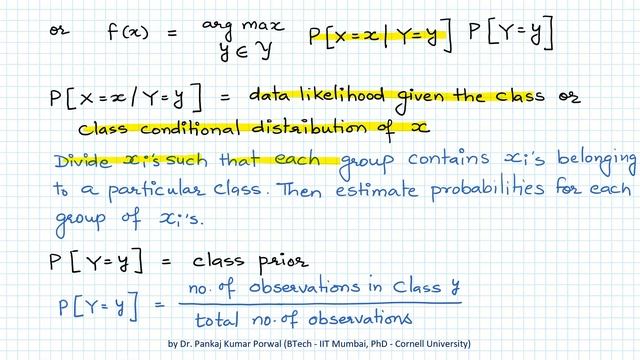 or f(x) = arg max P[X=x | Y=y] P[Y=y]
y ∈ Y
P[X=x / Y=y] = data likelihood given the class or
class conditional distribution of x
Divide xi's such that each group contains xi's belonging
to a particular class. Then estimate probabilities for each
group of xi's.
P[Y=y] = class prior
P[Y=y] = no. of observations in Class y
total no. of observations
by Dr. Pankaj Kumar Porwal (BTech - IIT Mumbai, PhD - Cornell University)